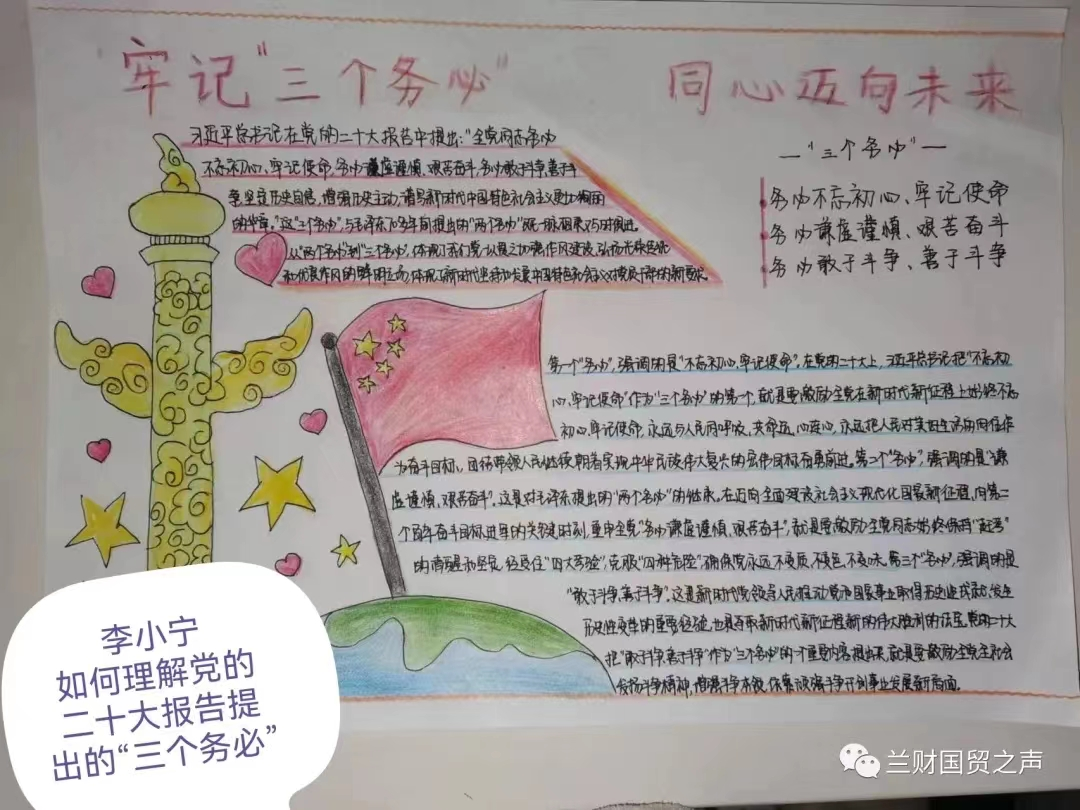 牢记“三个务必” 同心迈向未来
习近平总书记在党的二十大报告中提出:“全党同志务必
不忘初心、牢记使命,务必谦虚谨慎、艰苦奋斗,务必敢于斗争、善于斗
争,坚定历史自信,增强历史主动,谱写新时代中国特色社会主义更加绚丽
的华章。”这“三个务必”,与毛泽东70多年前提出的“两个务必”既一脉相承又与时俱进。
从“两个务必”到“三个务必”,体现了我们党一以贯之加强作风建设,弘扬光荣传统
和优良作风的鲜明立场,体现了新时代坚持和发展中国特色社会主义对党员干部的新要求
—“三个务必”—
务必不忘初心、牢记使命
务必谦虚谨慎、艰苦奋斗
务必敢于斗争、善于斗争
第一个“务必”,强调的是“不忘初心、牢记使命”,在党的二十大上,习近平总书记把“不忘初
心、牢记使命”作为“三个务必”的第一个,就是要激励全党在新时代新征程上始终不忘
初心、牢记使命,永远与人民同呼吸、共命运、心连心,永远把人民对美好生活的向往作
为奋斗目标,团结带领人民继续朝着实现中华民族伟大复兴的宏伟目标奋勇前进。第二个“务必”,强调的是“谦
虚谨慎、艰苦奋斗”,这是对毛泽东提出的“两个务必”的继承。在迈向全面建设社会主义现代化国家新征程、向第二
个百年奋斗目标进军的关键时刻,重申全党“务必谦虚谨慎、艰苦奋斗”,就是要激励全党同志始终保持“赶考”
的清醒和坚定,经受住“四大考验”,克服“四种危险”,确保党永远不变质、不变色、不变味。第三个“务必”,强调的是
“敢于斗争、善于斗争”,这是新时代党领导人民推动党和国家事业取得历史性成就、发生
历史性变革的重要经验,也是夺取新时代新征程新的伟大胜利的法宝。党的二十大
把“敢于斗争、善于斗争”作为“三个务必”的一个重要内容提出来,就是要激励全党全社会
发扬斗争精神,增强斗争本领,依靠顽强斗争打开事业发展新局面。
李小宁
如何理解党的
二十大报告提
出的“三个务必”
兰财国贸之声